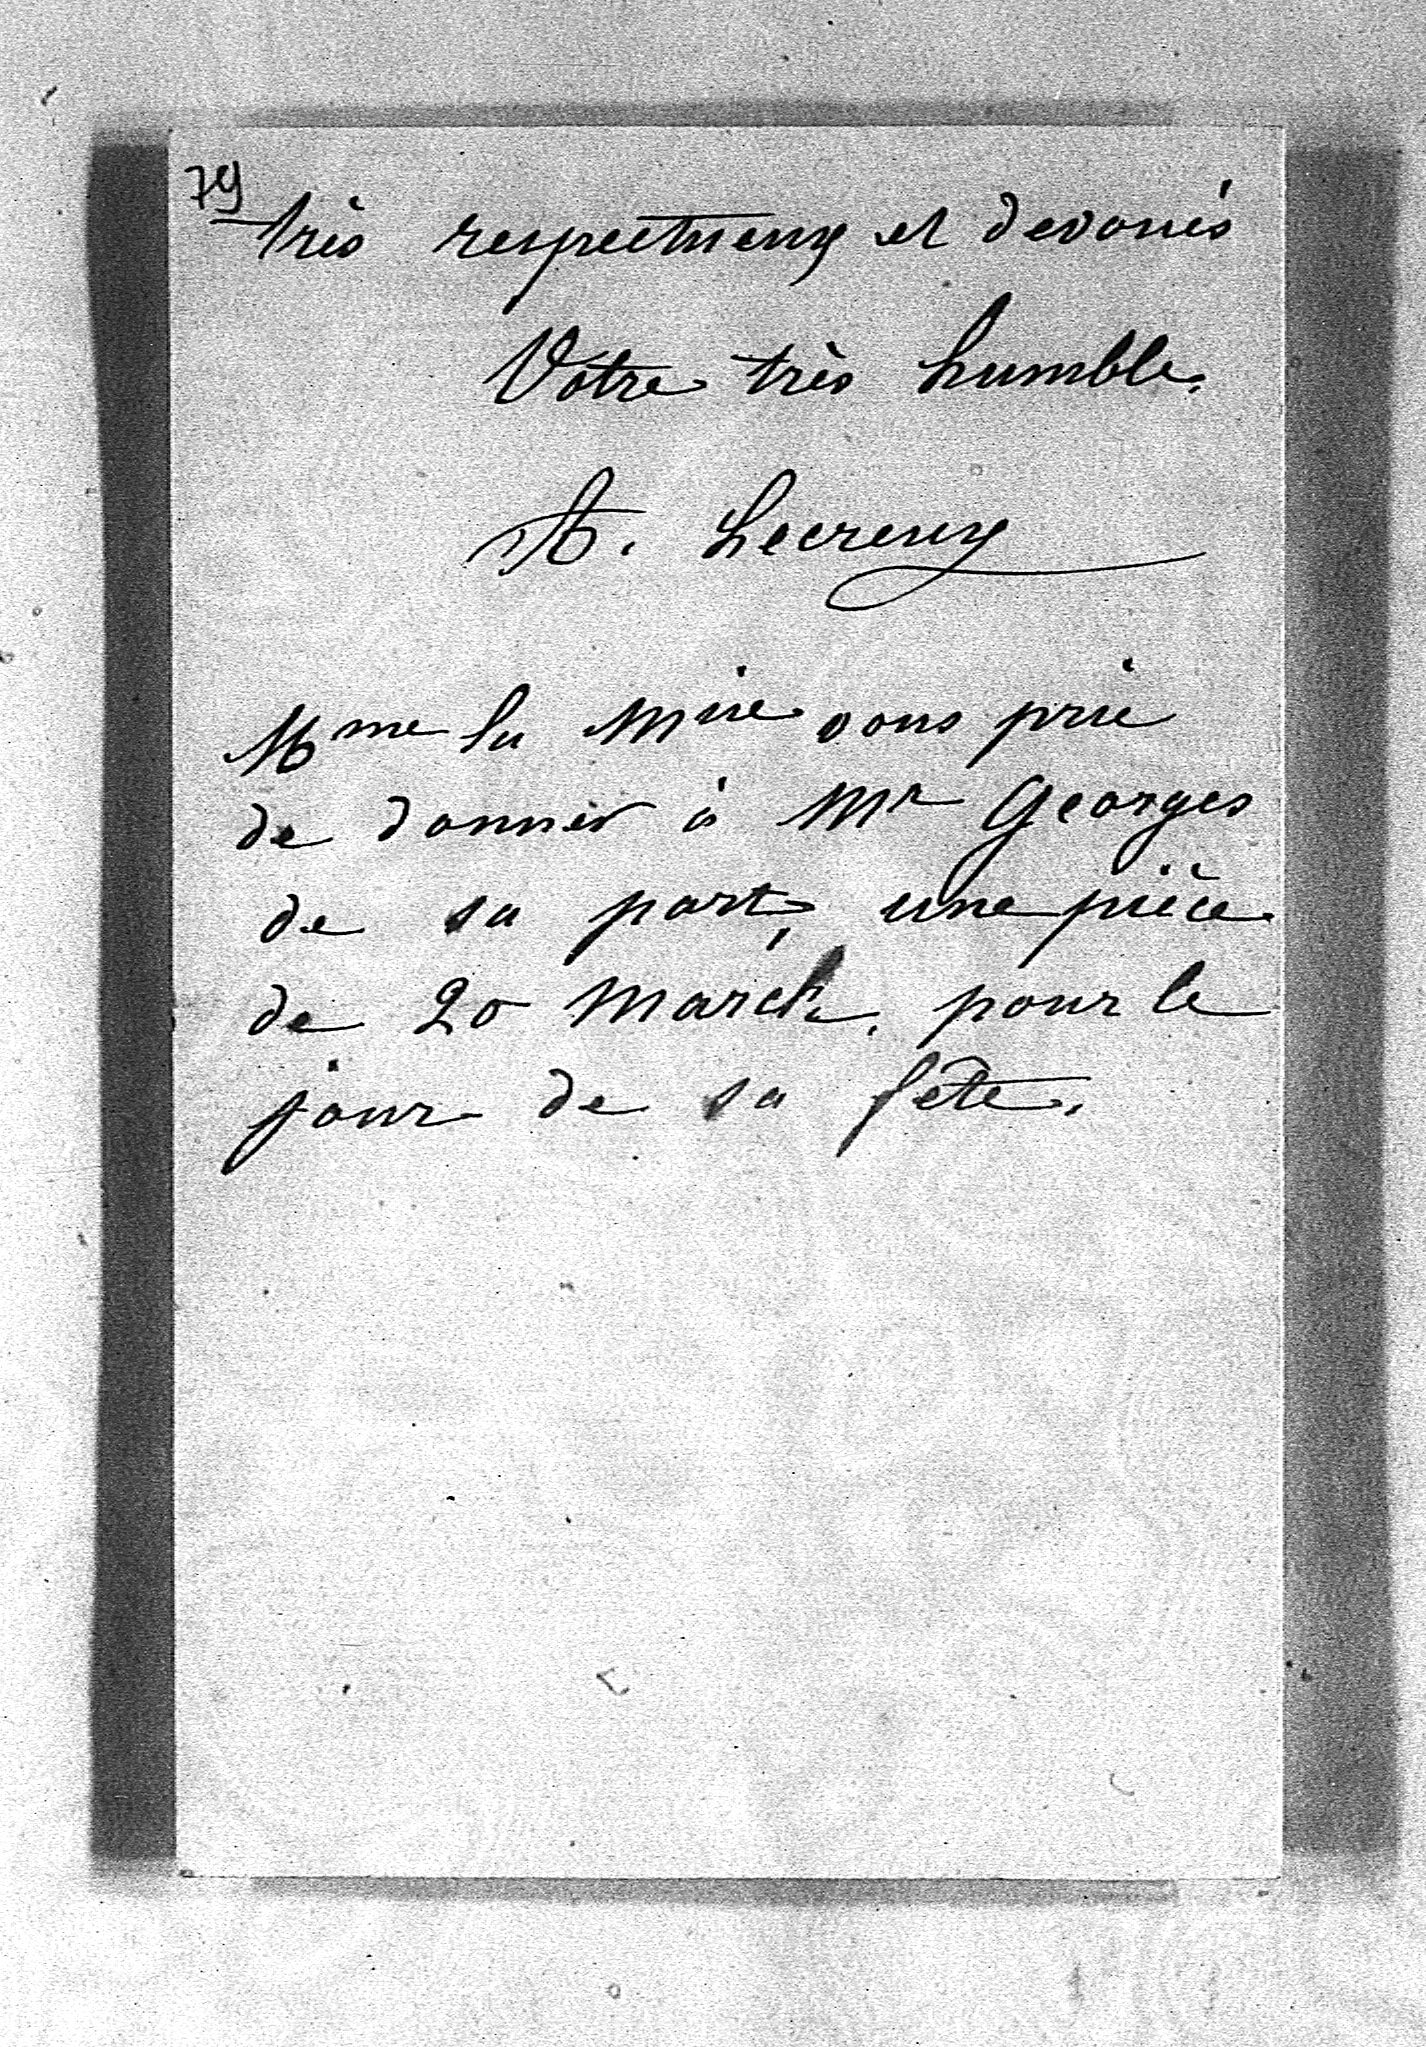 79
très respectueux et devoués
Votre très humble.
A. Lecreux
Mme la Mise vous prie
de donner à Mr Georges
de sa part, une pièce
de 20 March. pour le
jour de sa fête.